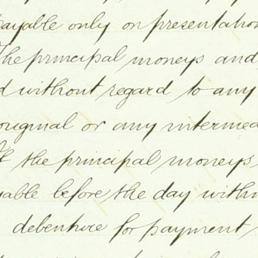 payable only on presentation
The principal moneys and
d without regard to any
original or any intermed
If the principal moneys,
yable before the day within
debenture for payment